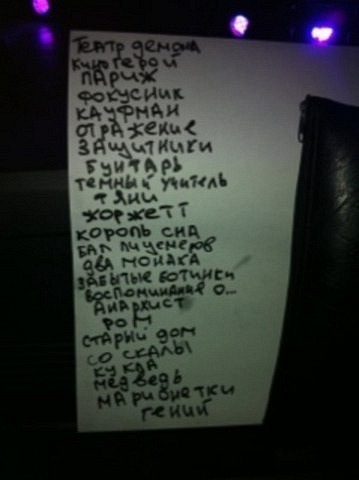 ТЕАТР ДЕМОНА
КИНОГЕРОЙ
ПАРИЖ
ФОКУСНИК
КАУФМАН
ОТРАЖЕНИЕ
ЗАЩИТНИКИ
БУНТАРЬ
ТЕМНЫЙ УЧИТЕЛЬ
ТЯНИ
ЖОРЖЕТТ
КОРОЛЬ СНА
БАЛ ЛИЦЕМЕРОВ
ДВА МОНАХА
ЗАБЫТЫЕ БОТИНКИ
ВОСПОМИНАНИЕ О...
АНАРХИСТ
РОМ
СТАРЫЙ ДОМ
СО СКАЛЫ
КУКЛА
МЕДВЕДЬ
МАРИОНЕТКИ
ГЕНИЙ